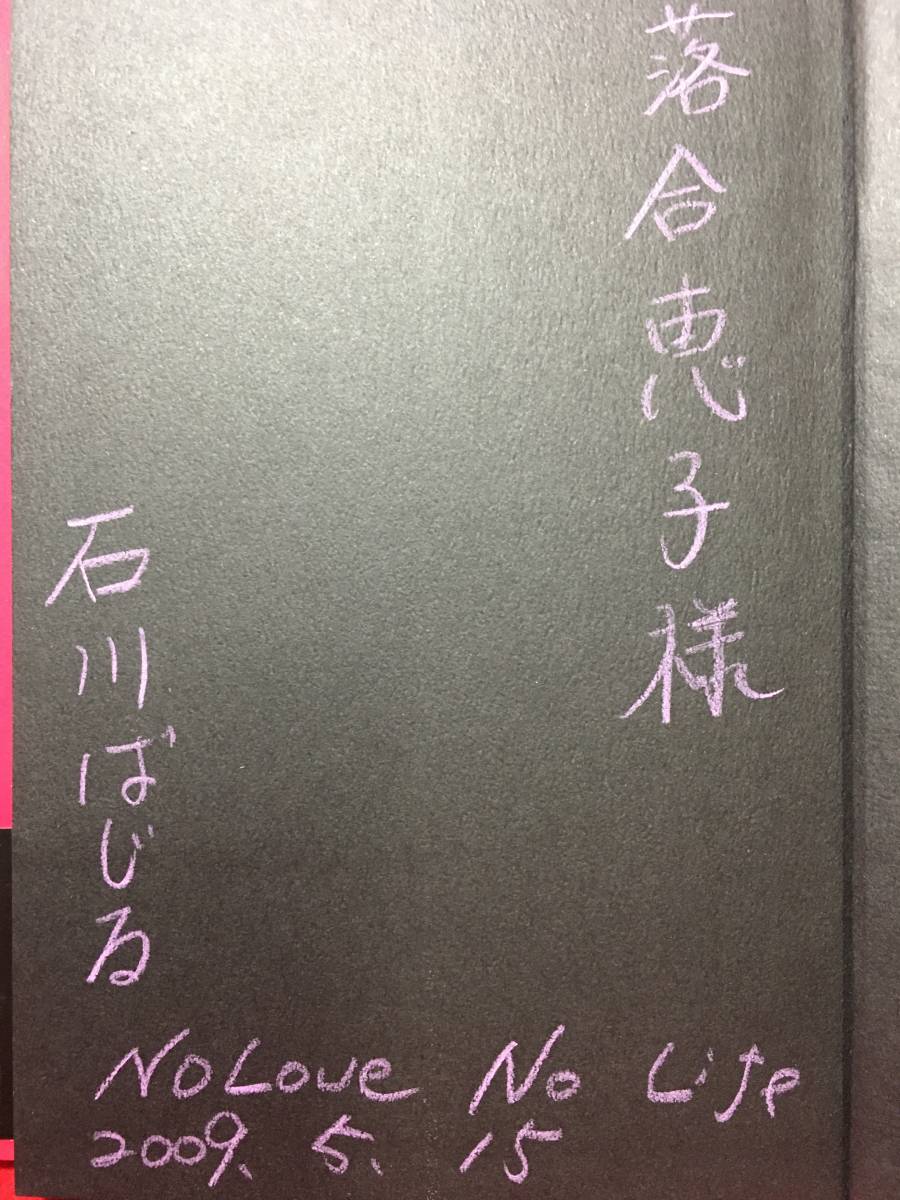 落合恵子様
石川ばじる
No Love No Life
2009. 5. 15